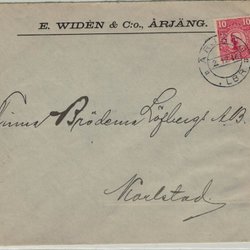 E. WIDÉN & C:o., ÅRJÄNG.
10
Firma Bröderna Löfbergs A.B.
Karlstad